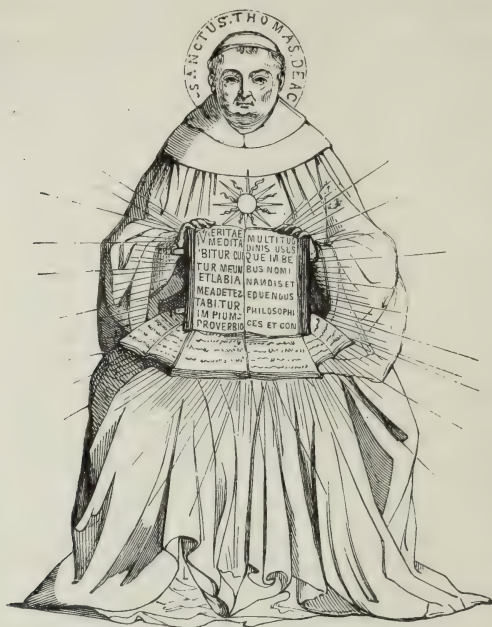 SANCTUS.THOMAS.DEAC
VERITAE
MEDITA
BITUR QU
TUR MEUN
ET LABIA
MEADETEZ
TABITUR
IMPIUM-
PROVERBIO
MULTITUD
DINIS USUS
QUE IM BE
BUS NOMI
NANDIS ET
EQUENDUS
PHILOSOPHI
CES ET CON